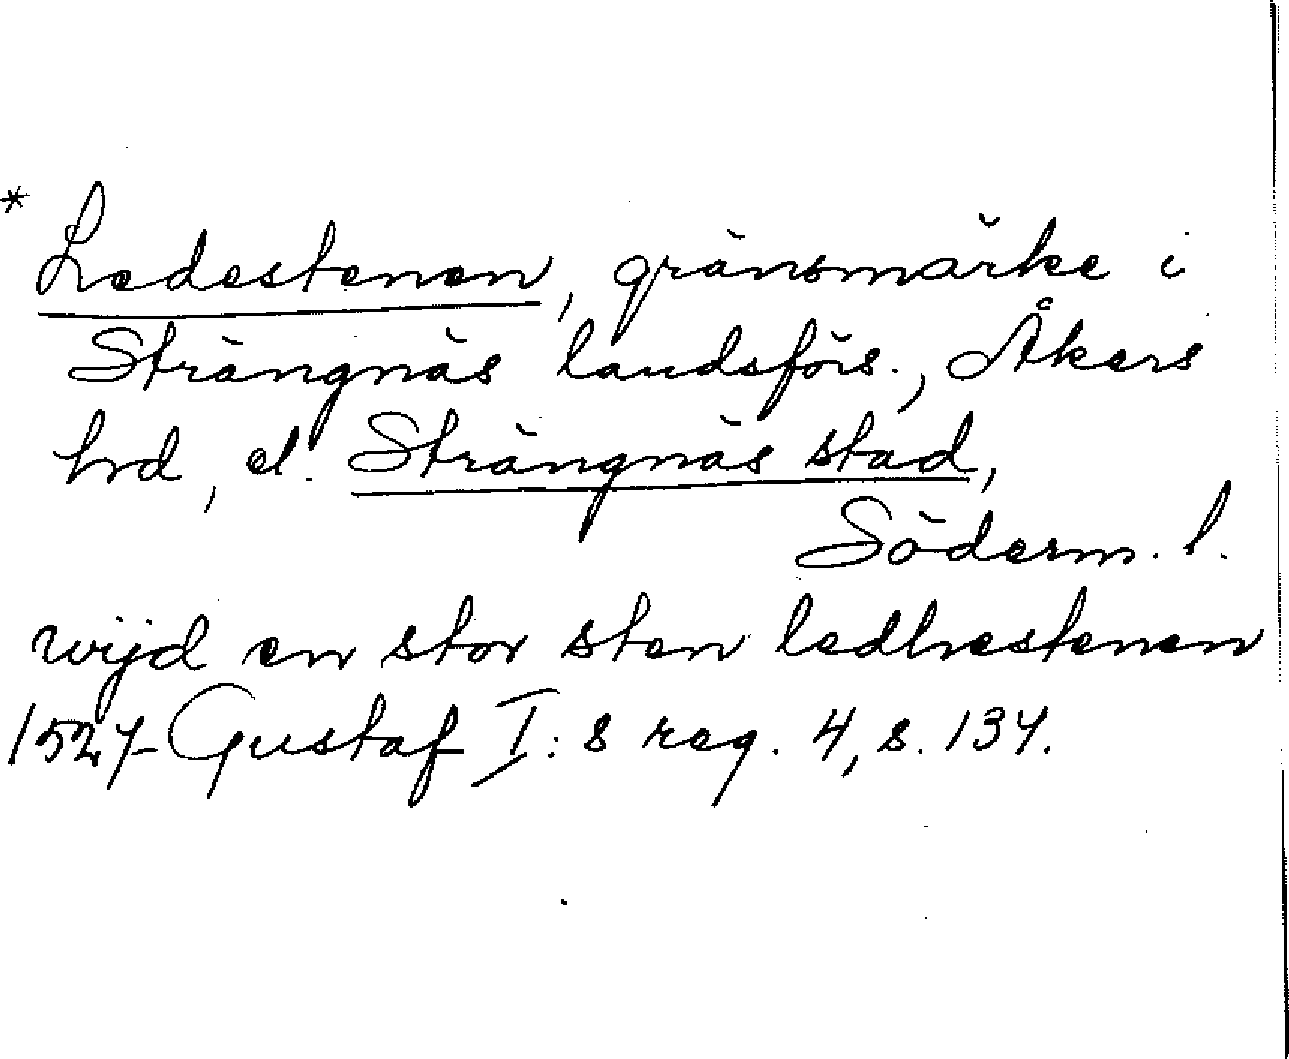 * Ledestenen, gränsmärke i
Strängnäs landsförs., Åkers
hrd, el. Strängnäs stad,
Söderm. l.
wijd en stor sten ledhestenen
1527 Gustaf I:s reg. 4, s. 134.